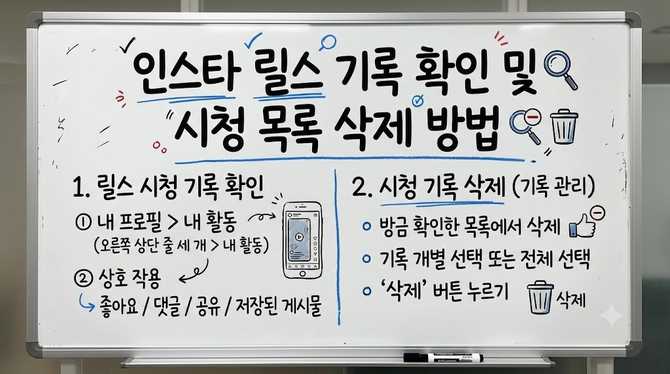 인스타 릴스 기록 확인 및
시청 목록 삭제 방법
1. 릴스 시청 기록 확인
① 내 프로필 > 내 활동
(오른쪽 상단 줄 세 개 > 내 활동)
② 상호 작용
↳ 좋아요 / 댓글 / 공유 / 저장된 게시물
2. 시청 기록 삭제 (기록 관리)
방금 확인한 목록에서 삭제
기록 개별 선택 또는 전체 선택
'삭제' 버튼 누르기
삭제